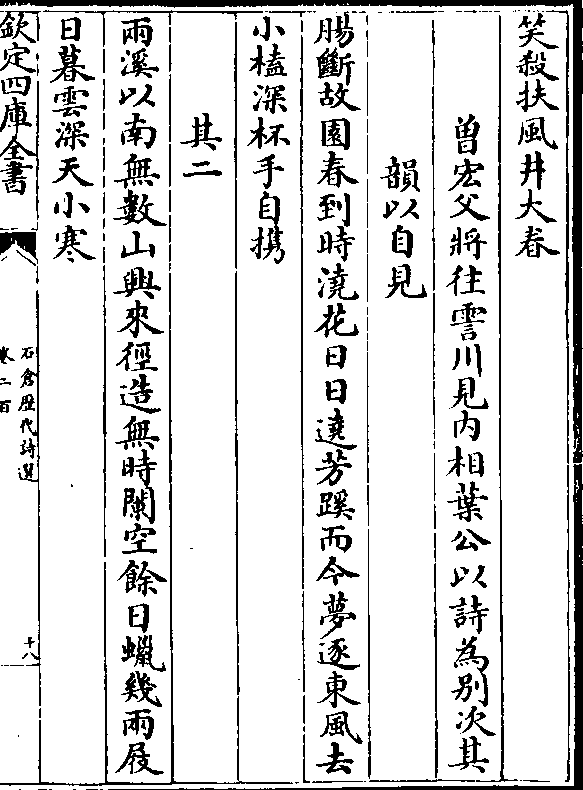 笑殺扶風井大春
曽宏父將往霅川見内相葉公以詩為別次其
韻以自見
腸斷故園春到時澆花日日遶芳蹊而今夢逐東風去
小榼深杯手自携
其二
兩溪以南無數山興來徑造無時闌空餘日蠟幾兩屐
日暮雲深天小寒
欽定四庫全書
石倉歴代詩選
卷二百
十八